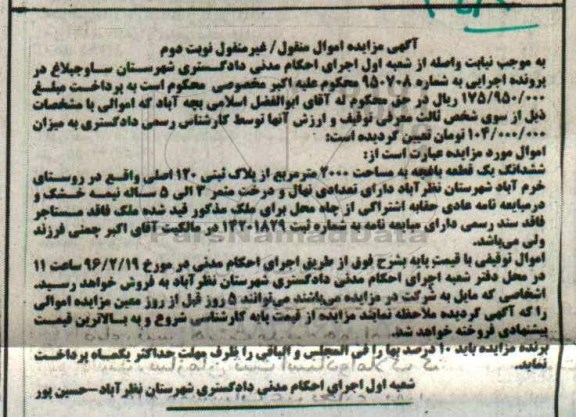 آگهی مزایده اموال منقول/ غیرمنقول نوبت دوم
به موجب نیابت واصله از شعبه اول اجرای احکام مدنی دادگستری شهرستان ساوجبلاغ در
پرونده اجرایی به شماره ۹۵۰۷۰۸ محکوم علیه اکبر مخصوصی محکوم است به پرداخت مبلغ
۱۷۵/۹۵۰/۰۰۰ ریال در حق محکوم له آقای ابوالفضل اسلامی بجه آباد که اموالی با مشخصات
ذیل از سوی شخص ثالث معرفی توقیف و ارزش آنها توسط کارشناس رسمی دادگستری به میزان
۱۰۴/۰۰۰/۰۰۰ تومان تعیین گردیده است:
اموال مورد مزایده عبارت است از:
ششدانگ یک قطعه باغچه به مساحت ۲۰۰۰ مترمربع از پلاک ثبتی ۱۲۰ اصلی واقع در روستای
خرم آباد شهرستان نظرآباد دارای تعدادی نهال و درخت مثمر ۳ الی ۵ ساله نیمه خشک و
درمبایعه نامه عادی حقابه اشتراکی از چاه محل برای ملک مذکور قید شده ملک فاقد مستاجر
فاقد سند رسمی دارای مبایعه نامه به شماره ثبت ۱۴۲۰۱۸۲۹ در مالکیت آقای اکبر چمنی فرزند
ولی می‌باشد.
اموال توقیفی با قیمت پایه بشرح فوق از طریق اجرای احکام مدنی در مورخ ۹۶/۲/۱۹ ساعت ۱۱
در محل دفتر شعبه اجرای احکام مدنی دادگستری شهرستان نظرآباد به فروش خواهد رسید.
اشخاصی که مایل به شرکت در مزایده می‌باشند می‌توانند ۵ روز قبل از روز معین مزایده اموالی
را که آگهی گردیده ملاحظه نمایند مزایده از قیمت پایه کارشناسی شروع و به بالاترین قیمت
پیشنهادی فروخته خواهد شد.
برنده مزایده باید ۱۰ درصد بها را فی المجلس و الباقی را ظرف مهلت حداکثر یکماه پرداخت
نماید.
شعبه اول اجرای احکام مدنی دادگستری شهرستان نظرآباد-حسین پور
ParsNamadData